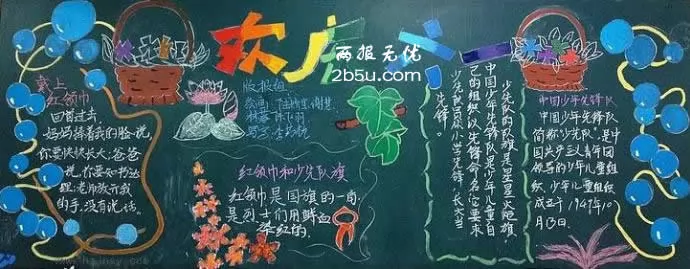 欢庆六一
两报无忧
2b5u.com
戴上
红领巾
回首过去
妈妈摸着我的脸说,
你要快快长大;爸爸
说,你要知书达
理;老师放开我
的手,没有说话。
版报组
红领巾和少先队旗
红领巾是国旗的一角
是烈士们用鲜血
染红的
少先队的队旗是星星火炬旗,
中国少年先锋队是少年儿童自
己的组织以先锋命名它要求
少先队员从小学先锋,长大当
先锋。
中国少年先锋队
简称"少先队",是中
国共产主义青年团
领导的少年儿童组
织,少年儿童组织
成立于1949年10
月13日.